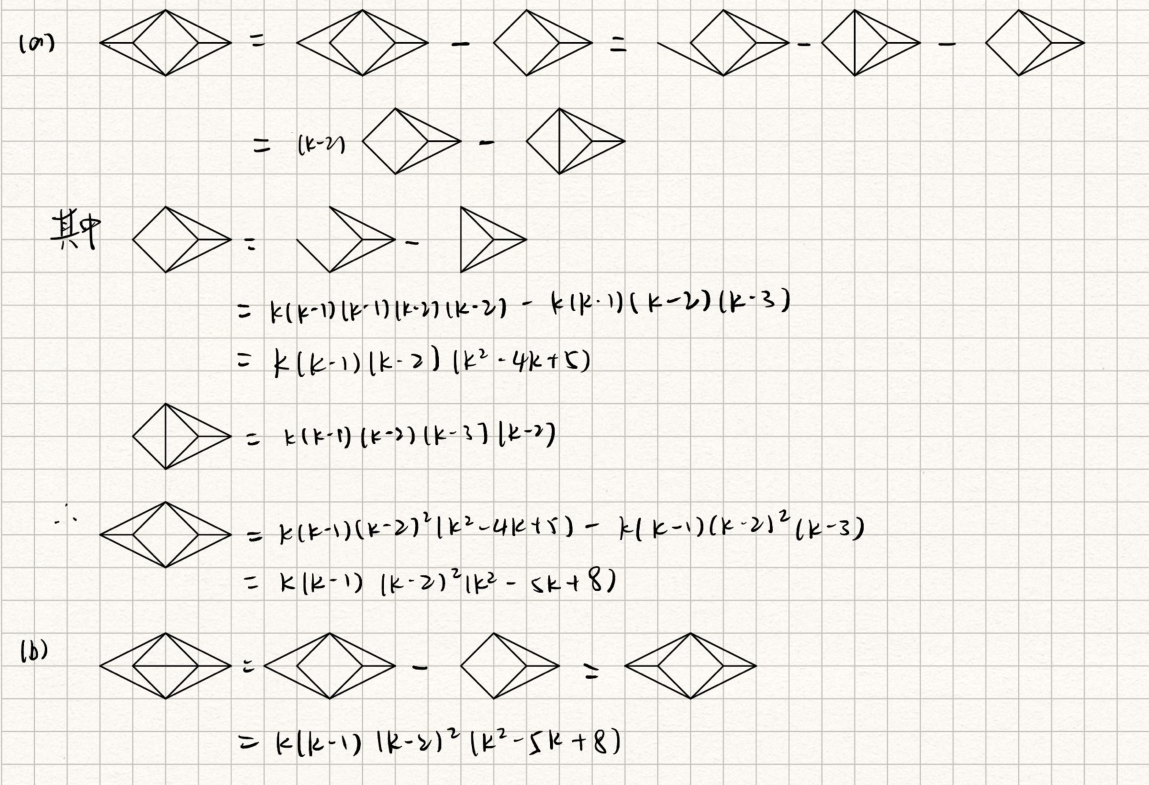 (a) = - = - -
= (k-2) -
其中 = -
= k(k-1)(k-1)(k-2)(k-2) - k(k-1)(k-2)(k-3)
= k(k-1)(k-2)(k²-4k+5)
= k(k-1)(k-2)(k-3)(k-2)
∴ = k(k-1)(k-2)²(k²-4k+5) - k(k-1)(k-2)²(k-3)
= k(k-1)(k-2)²(k²-5k+8)
(b) = - =
= k(k-1)(k-2)²(k²-5k+8)